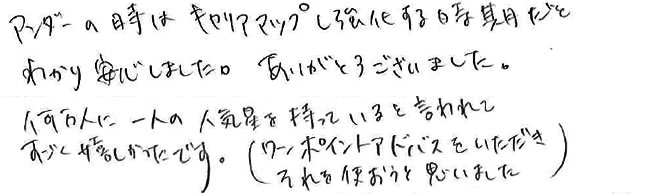 アンダーの時はキャリアマップし強化する時期だと
わかり安心しました。ありがとうございました。
何万人に一人の人気星を持っていると言われて
すごく嬉しかったです。(ワンポイントアドバスをいただき
それを使おうと思いました)